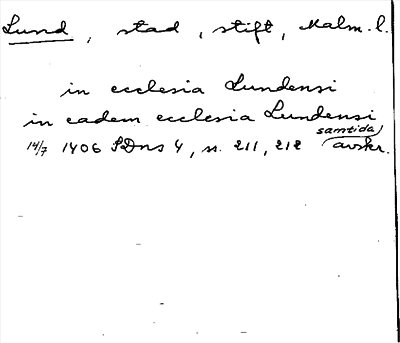 Lund, stad, stift, Malm. l.
in ecclesia Lundensi
in eadem ecclesia Lundensi
14/7 1406 SDns 4, n. 211, 212 samtida avskr.